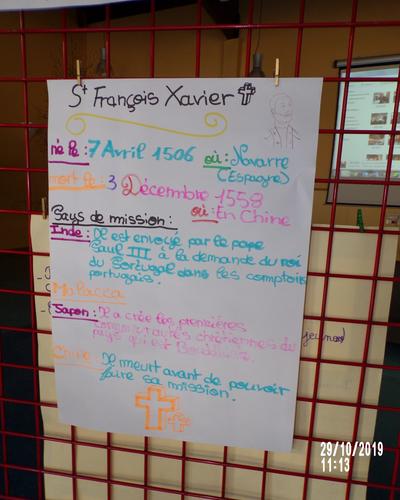 St François Xavier
né le : 7 Avril 1506 où : Navarre
(Espagne)
mort le : 3 Décembre 1558
où : En Chine
Pays de mission :
Inde : Il est envoyé par le pape
Paul III à la demande du roi
du Portugal dans les comptoirs
portugais.
Malacca
Japon : Il a crée les premières
communautés chrétiennes du
pays qui est Bouddhiste.
Chine : Il meurt avant de pouvoir
faire sa mission.
29/10/2019
11:13